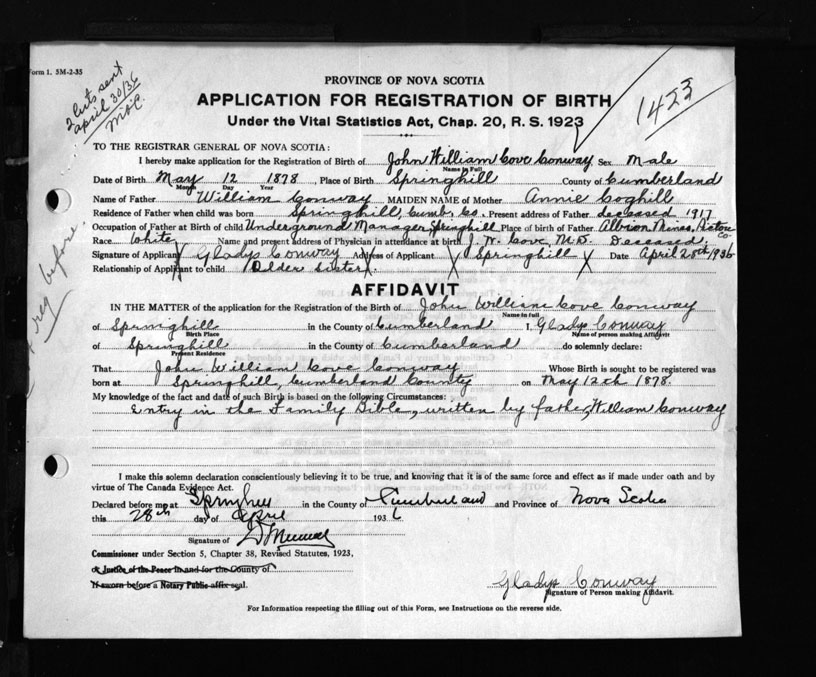 Form 1. 5M-2-35
2 certs sent
april 30/36
M.O.C.
1423
PROVINCE OF NOVA SCOTIA
APPLICATION FOR REGISTRATION OF BIRTH
Under the Vital Statistics Act, Chap. 20, R. S. 1923
TO THE REGISTRAR GENERAL OF NOVA SCOTIA:
I hereby make application for the Registration of Birth of John William Cove Conway Sex Male
Name in Full
Date of Birth May 12 1878, Place of Birth Springhill County of Cumberland
Month Day Year
Name of Father William Conway MAIDEN NAME of Mother Annie Coghill
Residence of Father when child was born Springhill, Cumb. Co. Present address of Father deceased 1917
Occupation of Father at Birth of child Underground Manager, Springhill Place of birth of Father Albion Mines, Pictou Co
Race White Name and present address of Physician in attendance at birth J. W. Cove, M.D. Deceased.
Signature of Applicant X Gladys Conway X Address of Applicant X Springhill X Date April 28th 1936
Relationship of Applicant to child Older Sister.
reg before
AFFIDAVIT
IN THE MATTER of the application for the Registration of the Birth of John William Cove Conway
Name in full
of Springhill in the County of Cumberland I, Gladys Conway
Birth Place Name of person making Affidavit
of Springhill in the County of Cumberland do solemnly declare:
Present Residence
That John William Cove Conway Whose Birth is sought to be registered was
born at Springhill, Cumberland County on May 12th 1878.
My knowledge of the fact and date of such Birth is based on the following Circumstances:
Entry in the Family Bible, written by father, William Conway
I make this solemn declaration conscientiously believing it to be true, and knowing that it is of the same force and effect as if made under oath and by
virtue of The Canada Evidence Act.
Declared before me at Springhill in the County of Cumberland and Province of Nova Scotia
this 28th day of April 1936
Signature of
Commissioner under Section 5, Chapter 38, Revised Statutes, 1923,
or Justice of the Peace in and for the County of
If sworn before a Notary Public affix seal.
Gladys Conway
Signature of Person making Affidavit.
For Information respecting the filling out of this Form, see Instructions on the reverse side.